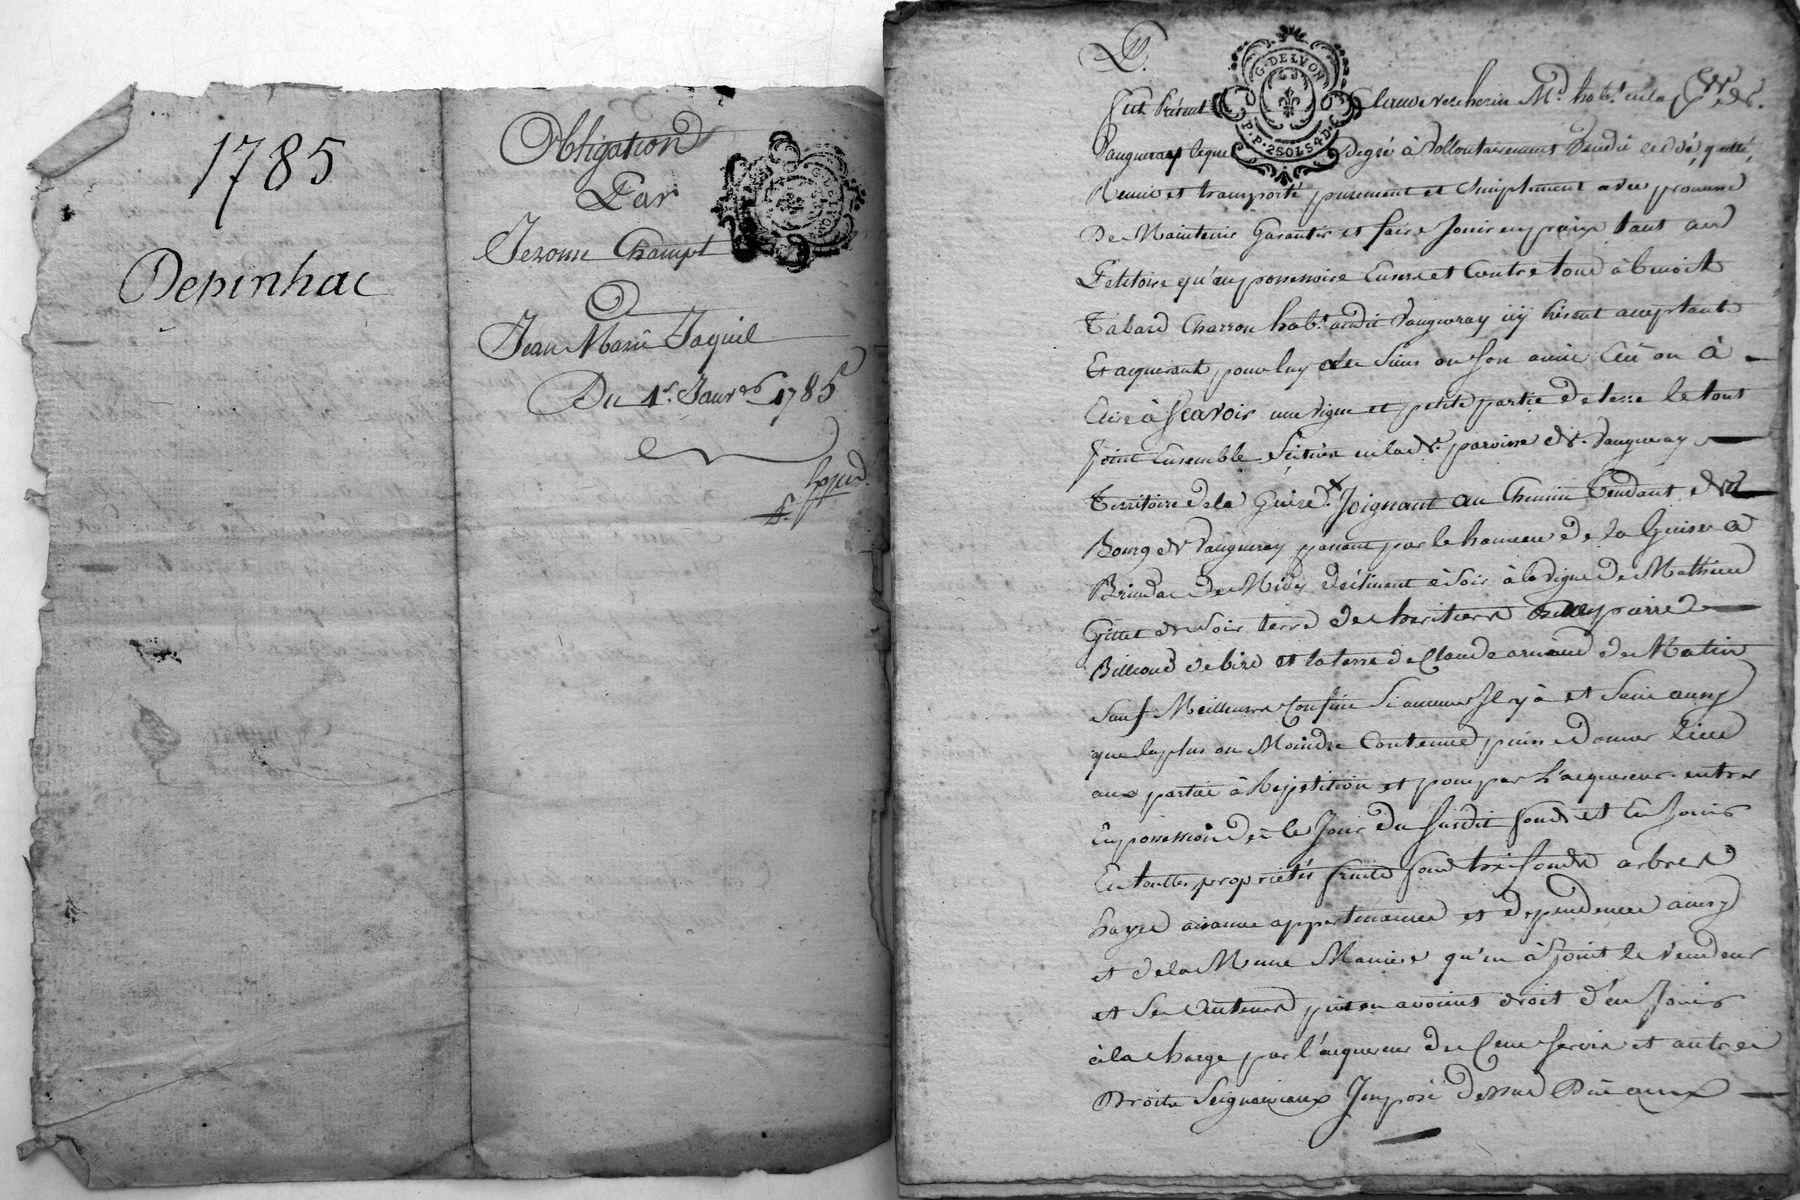 1785
Depinhac
Obligation
Par
Jerome Champt
A
Jean Marie Jaquil
Du 1r. Janvr 1785
Expd.
G. DE LYON
P.P. 2 SOLS 4 D.
Fut Présent Claude Md. habt. en la
Vaugneray lequel de gré à vollontairement Vendû cedé, quitté,
Remis et transporté purement et simplement avec promesse
De Maintenir Garantir et faire Jouir en paix tant au
Petitoire qu'au possessoire Envers et Contre tous à benoit
Tabard Charron habt. audit Vaugneray icy Présent acceptant
Et acquerant pour luy les Siens ou Son amis Elû ou à
Elire à Scavoir une vigne et petite partie de terre le tout
Joint Ensemble Scitués en lade. paroisse de. Vaugneray
Territoire de la Joignant au Chemin Tendant du
Bourg de Vaugneray passant par le hameau de la à
Brindas de Midy déclinant à Soir à la vigne de Mathieu
de Soir terre des heritiers pierre
de bize et la terre de Claude arnaud de Matin
Sauf Meilleurs Confins Si aucuns Il y à et Sans aussy
que le plus ou Moindre Contenue puisse Donner Lieu
aux parties à Repetition et pour par L'acquereur entrer
En possession dès le Jour du Susdit fonds et En Jouir
En touttes proprietés fruits fond tres fonds arbres
hayes aisances appartenances et dependences ainsy
et de la Meme Maniere qu'en à Jouit le Vendeur
et Ses Auteurs put ou avoient droit d'en Jouir
à la charge par l'acquereur des Cens Servis et autres
Droits Seigneuriaux Imposé Dessus Dûs aux